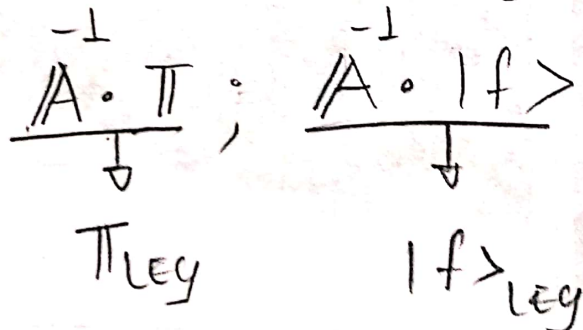 𝔸⁻¹ · 𝕋 ; 𝔸⁻¹ · |f>
𝕋LEG |f>LEG